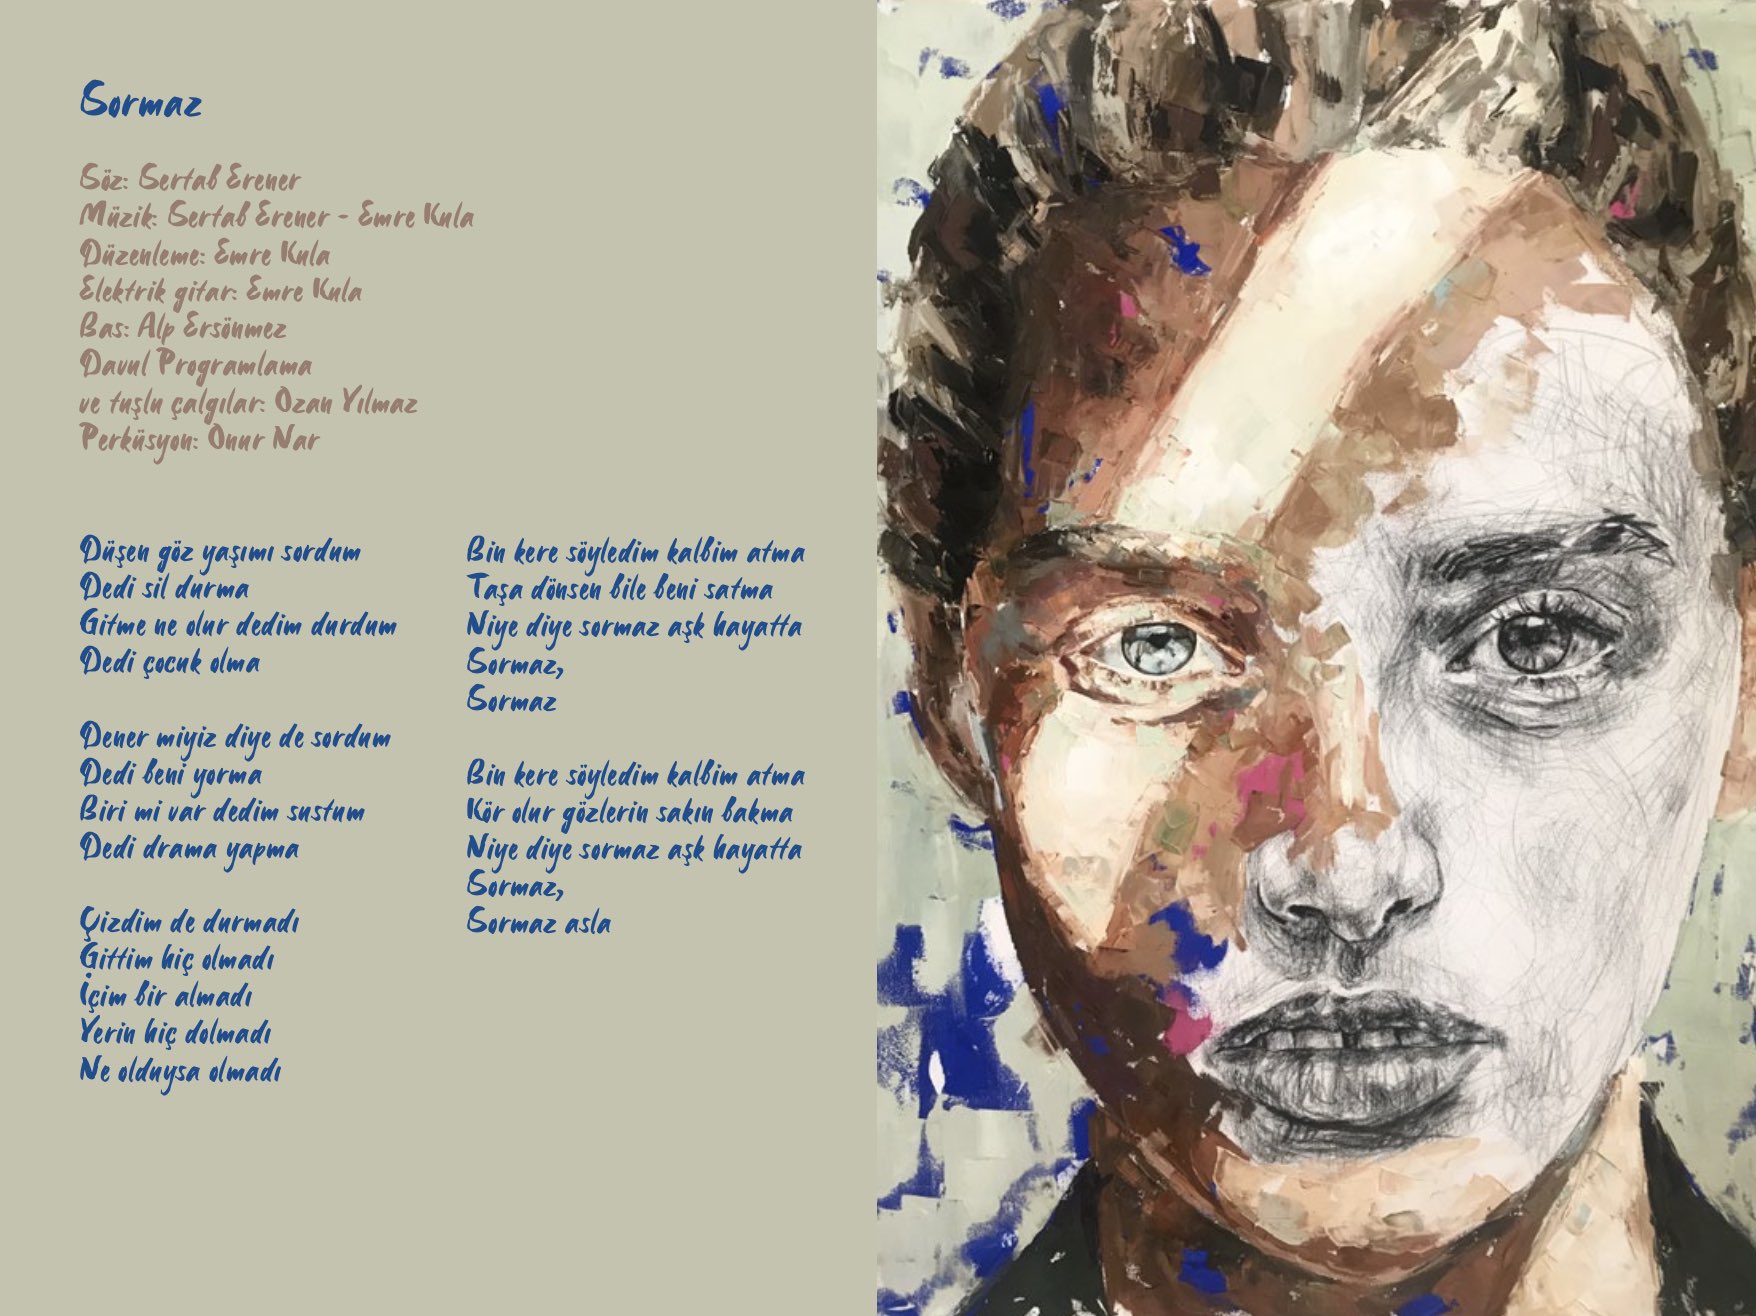 Sormaz
Söz: Sertab Erener
Müzik: Sertab Erener - Emre Kula
Düzenleme: Emre Kula
Elektrik gitar: Emre Kula
Bas: Alp Ersönmez
Davul Programlama
ve tuşlu çalgılar: Ozan Yılmaz
Perküsyon: Onur Nar
Düşen göz yaşımı sordum
Dedi sil durma
Gitme ne olur dedim durdum
Dedi çocuk olma
Dener miyiz diye de sordum
Dedi beni yorma
Biri mi var dedim sustum
Dedi drama yapma
Çizdim de durmadı
Gittim hiç olmadı
İçim bir almadı
Yerin hiç dolmadı
Ne olduysa olmadı
Bin kere söyledim kalbim atma
Taşa dönsen bile beni satma
Niye diye sormaz aşk hayatta
Sormaz,
Sormaz
Bin kere söyledim kalbim atma
Kör olur gözlerin sakın bakma
Niye diye sormaz aşk hayatta
Sormaz,
Sormaz asla